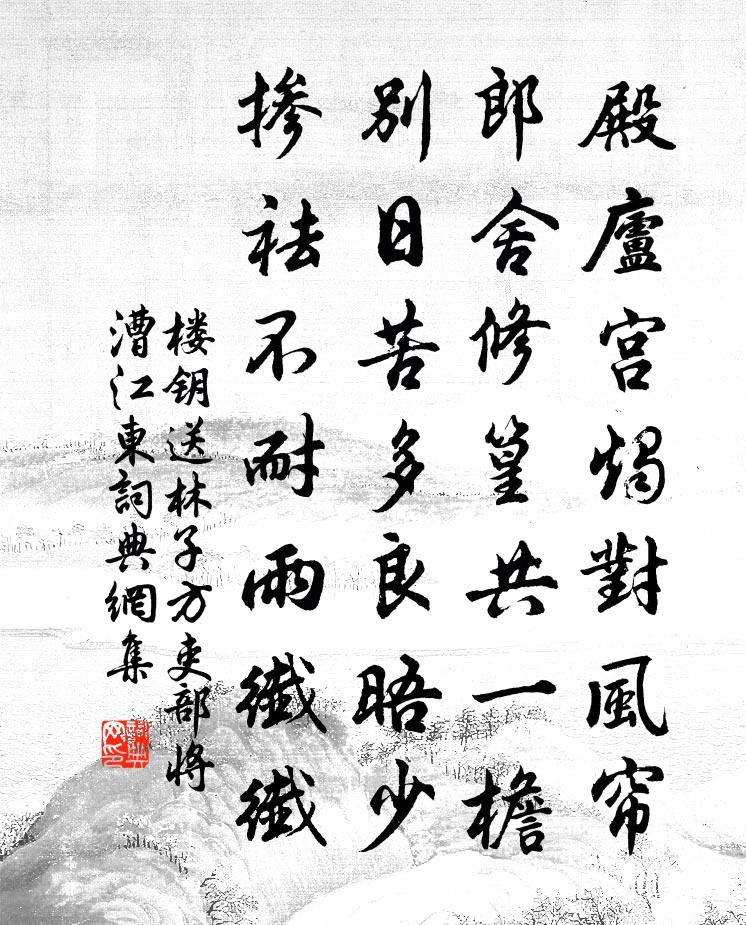 殿廬宮燭對風帘
郎舍修篁共一檐
別日苦多良晤少
掺祛不耐雨纖纖
楼钥送林子方吏部将
漕江東詞典網集